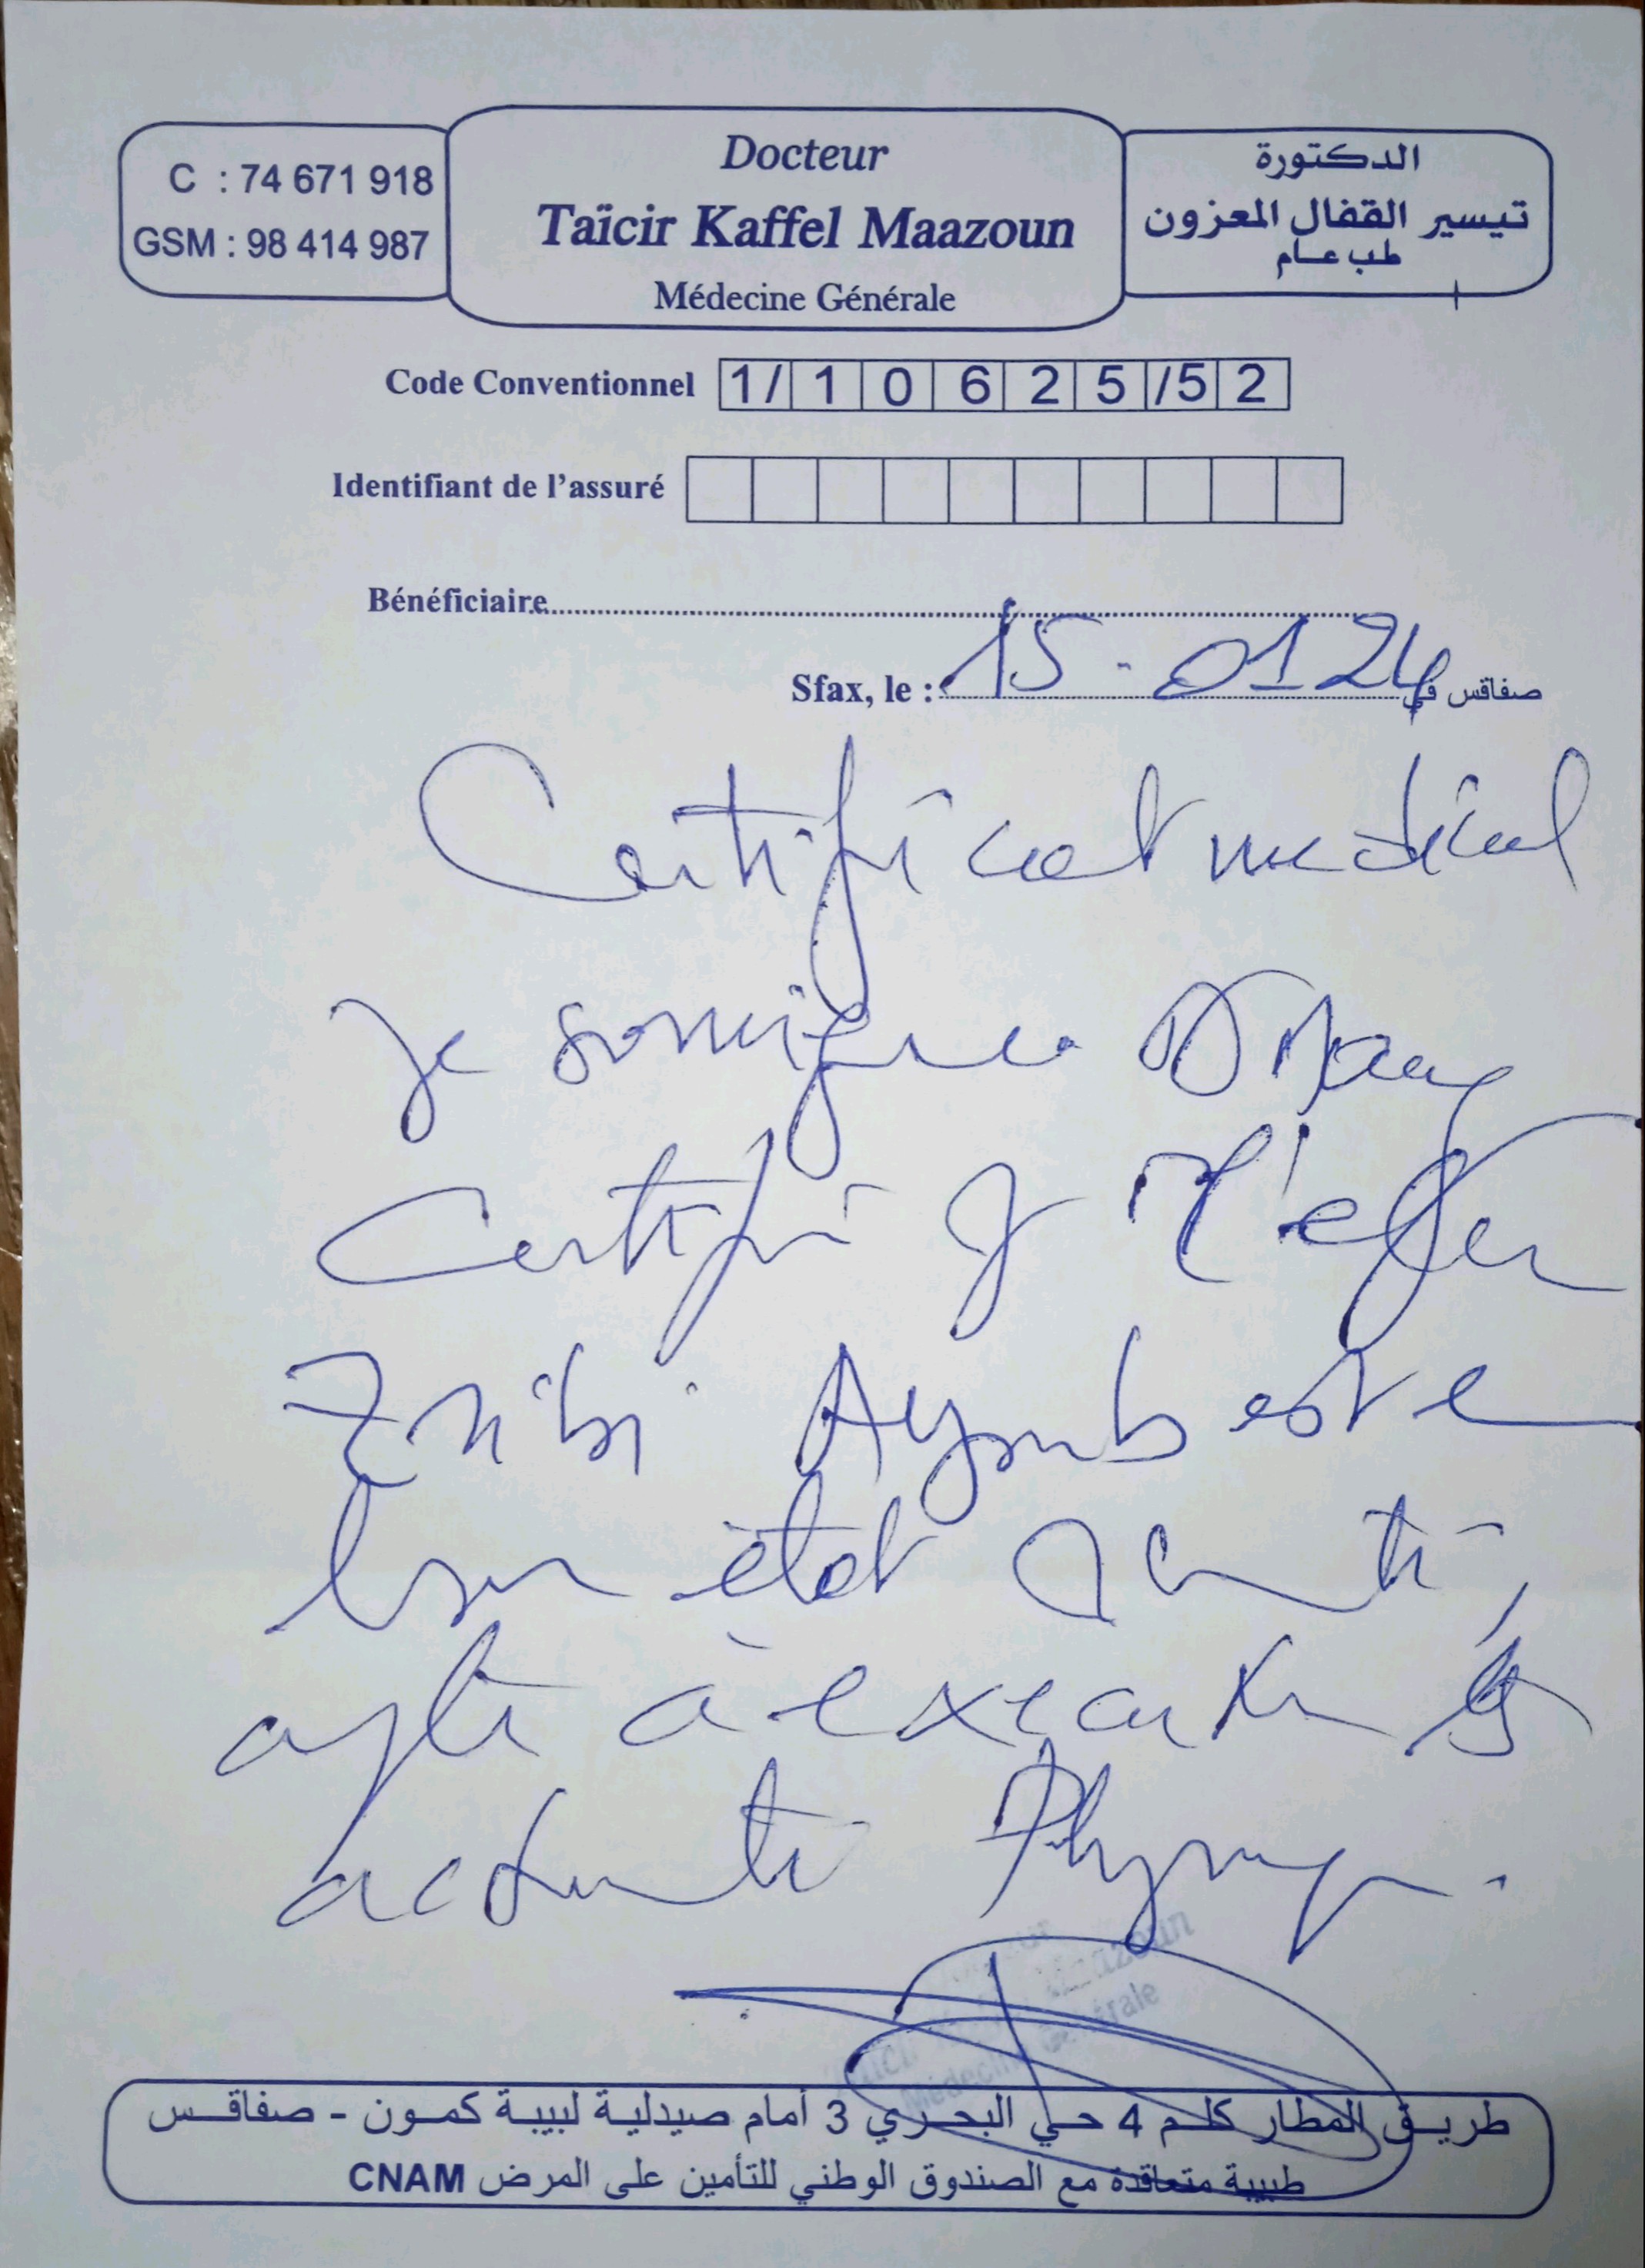 C : 74 671 918
GSM : 98 414 987
Docteur
Taïcir Kaffel Maazoun
Médecine Générale
الدكتورة
تيسير القفال المعزون
طب عام
Code Conventionnel 1/ 1 0 6 2 5 /5 2
Identifiant de l'assuré
Bénéficiaire
Sfax, le : 15.01 24 صفاقس في
Certificat medical
Je soussignée Dr
Certifie q l'
Zribi est en
bon état santé,
apte à executer
activité Physique.
Maazoun
Médecine Générale
طريق المطار كلم 4 حي البحري 3 أمام صيدلية لبيبة كمون - صفاقس
طبيبة متعاقدة مع الصندوق الوطني للتأمين على المرض CNAM